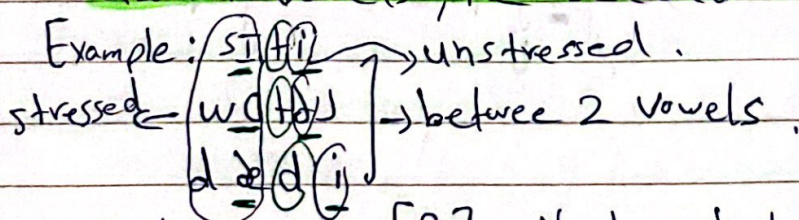 Example: sɪti → unstressed.
stressed ← wɑtəʊ → betwee 2 vowels.
dædi